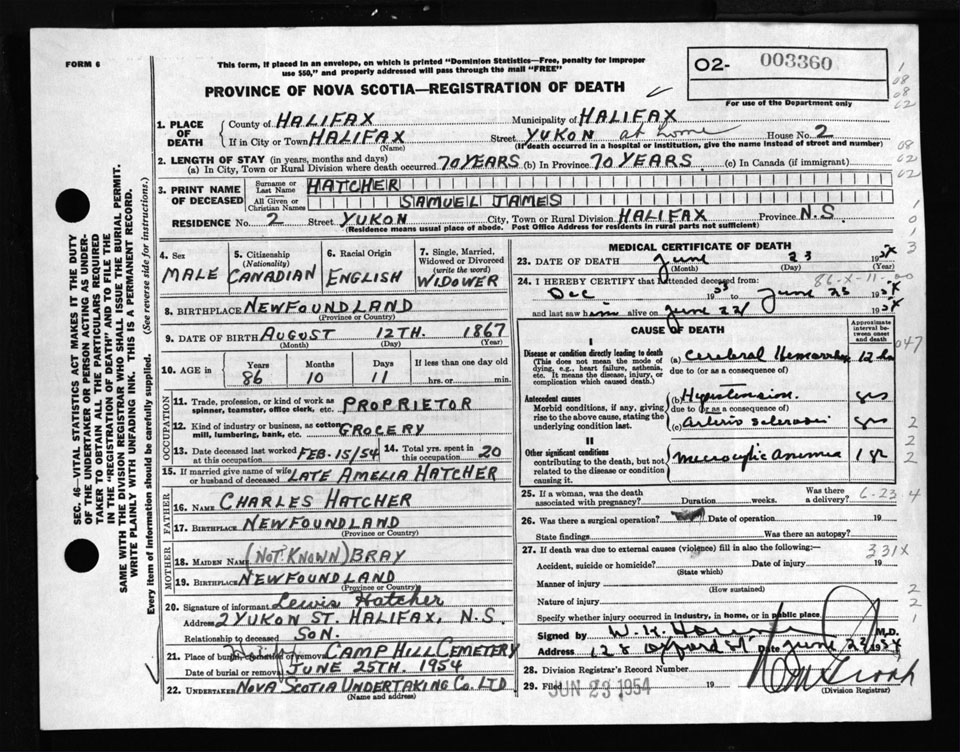 FORM 6
This form, if placed in an envelope, on which is printed "Dominion Statistics—Free, penalty for improper
use $50," and properly addressed will pass through the mail "FREE"
PROVINCE OF NOVA SCOTIA—REGISTRATION OF DEATH
02- 003360
For use of the Department only
1. PLACE OF DEATH
County of HALIFAX Municipality of HALIFAX
If in City or Town HALIFAX (Name) Street YUKON at home House No. 2
(If death occurred in a hospital or institution, give the name instead of street and number)
2. LENGTH OF STAY (in years, months and days)
(a) In City, Town or Rural Division where death occurred 70 YEARS (b) In Province 70 YEARS (c) In Canada (if immigrant)
3. PRINT NAME OF DECEASED
Surname or Last Name HATCHER
All Given or Christian Names SAMUEL JAMES
RESIDENCE No. 2 Street YUKON City, Town or Rural Division HALIFAX Province N.S.
(Residence means usual place of abode. Post Office Address for residents in rural parts not sufficient)
4. Sex MALE
5. Citizenship (Nationality) CANADIAN
6. Racial Origin ENGLISH
7. Single, Married, Widowed or Divorced (write the word) WIDOWER
8. BIRTHPLACE NEWFOUNDLAND
(Province or Country)
9. DATE OF BIRTH AUGUST 12TH. 1867
(Month) (Day) (Year)
10. AGE in Years 86 Months 10 Days 11 If less than one day old hrs. or min.
OCCUPATION
11. Trade, profession, or kind of work as spinner, teamster, office clerk, etc. PROPRIETOR
12. Kind of industry or business, as cotton mill, lumbering, bank, etc. GROCERY
13. Date deceased last worked at this occupation FEB. 15/54 14. Total yrs. spent in this occupation 20
15. If married give name of wife or husband of deceased LATE AMELIA HATCHER
FATHER
16. NAME CHARLES HATCHER
17. BIRTHPLACE NEWFOUNDLAND
(Province or Country)
MOTHER
18. MAIDEN NAME (NOT KNOWN) BRAY
19. BIRTHPLACE NEWFOUNDLAND
(Province or Country)
20. Signature of informant Lewis Hatcher
Address 2 YUKON ST. HALIFAX, N.S.
Relationship to deceased SON.
21. Place of burial, cremation or removal CAMP HILL CEMETERY
Date of burial or removal JUNE 25TH. 1954
22. UNDERTAKER NOVA SCOTIA UNDERTAKING CO. LTD
(Name and address)
MEDICAL CERTIFICATE OF DEATH
23. DATE OF DEATH June 23 1954
(Month) (Day) (Year)
24. I HEREBY CERTIFY that I attended deceased from: 86-X-11-00
Dec 1953 to June 23 1954
and last saw him alive on June 22 1954
CAUSE OF DEATH
Approximate interval between onset and death
I
Disease or condition directly leading to death (a) Cerebral Hemorrhage 12 hrs
(This does not mean the mode of dying, e.g., heart failure, asthenia, etc. It means the disease, injury, or complication which caused death.)
due to (or as a consequence of)
Antecedent causes (b) Hypertension. yrs
Morbid conditions, if any, giving rise to the above cause, stating the underlying condition last.
due to (or as a consequence of)
(c) Arterio sclerosis yrs
II
Other significant conditions contributing to the death, but not related to the disease or condition causing it.
Macrocytic Anemia 1 yr
25. If a woman, was the death associated with pregnancy? Duration weeks. Was there a delivery? 6-23 4
26. Was there a surgical operation? Date of operation 19
State findings Was there an autopsy?
27. If death was due to external causes (violence) fill in also the following:— 331X
Accident, suicide or homicide? Date of injury 19
(State which)
Manner of injury
(How sustained)
Nature of injury
Specify whether injury occurred in industry, in home, or in public place
Signed by W. K. M.D.
Address 128 Oxford St. Date June 23 1954
28. Division Registrar's Record Number
29. Filed JUN 23 1954 19
(Division Registrar)
SEC. 46—VITAL STATISTICS ACT MAKES IT THE DUTY
OF THE UNDERTAKER OR PERSON ACTING AS UNDER-
TAKER TO OBTAIN ALL THE PARTICULARS REQUIRED
IN THE "REGISTRATION OF DEATH" AND TO FILE THE
SAME WITH THE DIVISION REGISTRAR WHO SHALL ISSUE THE BURIAL PERMIT.
WRITE PLAINLY WITH UNFADING INK. THIS IS A PERMANENT RECORD.
Every item of information should be carefully supplied. (See reverse side for instructions.)